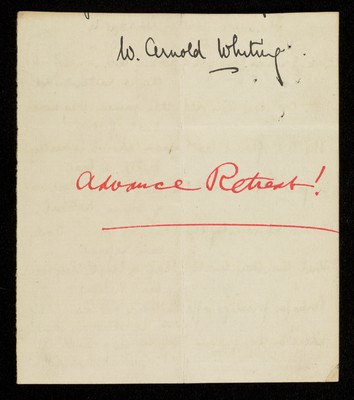 W. Arnold Whiting.
Advance Retreat!